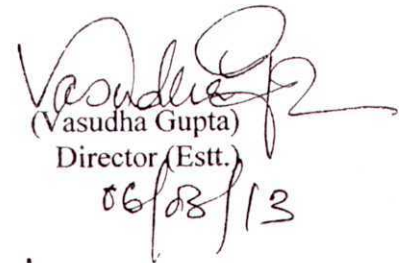 Vasudha Gupta
(Vasudha Gupta)
Director (Estt.)
06/03/13